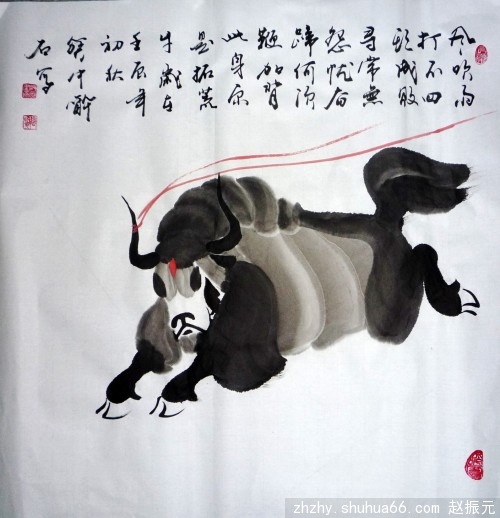 风吹雨
打不回
头成败
寻常無
怨忧奋
蹄何须
鞭加背
此身原
是拓荒
牛歲在
壬辰年
初秋
石写
zhzhy.shuhua66.com 赵振元